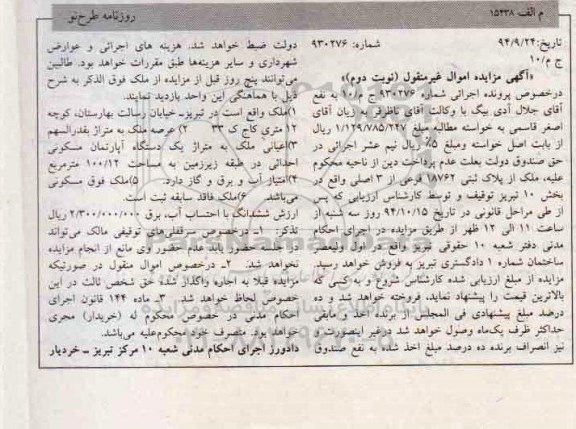 م الف ۱۵۴۳۸
روزنامه طرح‌نو
تاریخ: ۹۴/۹/۲۴ شماره: ۹۳۰۲۷۶
ج م/۱۰
«آگهی مزایده اموال غیرمنقول (نوبت دوم)»
درخصوص پرونده اجرائی شماره ۹۳۰۲۷۶ ج م/۱۰ به نفع
آقای جلال آدی بیگ با وکالت آقای ناظرقره و زیان آقای
اصغر قاسمی به خواسته مطالبه مبلغ ۱/۱۲۹/۷۸۵/۲۲۷ ریال
از بابت اصل خواسته ومبلغ ۵٪ ریال نیم عشر اجرائی در
حق صندوق دولت بعلت عدم پرداخت دین از ناحیه محکوم
علیه، ملک از پلاک ثبتی ۱۸۷۶۲ فرعی از ۳ اصلی واقع در
بخش ۱۰ تبریز توقیف و توسط کارشناس ارزیابی که پس
از طی مراحل قانونی در تاریخ ۹۴/۱۰/۱۵ روز سه شنبه از
ساعت ۱۱ الی ۱۲ ظهر از طریق مزایده در اجرای احکام
مدنی دفتر شعبه ۱۰ حقوقی تبریز واقع در اول ولیعصر
ساختمان شماره ۱ دادگستری تبریز به فروش خواهد رسید.
مزایده از مبلغ ارزیابی شده کارشناس شروع و به کسی که
بالاترین قیمت را پیشنهاد نماید، فروخته خواهد شد و ده
درصد مبلغ پیشنهادی فی المجلس از برنده اخذ و مابقی
حداکثر ظرف یک‌ماه وصول خواهد شد درغیر اینصورت و
نیز انصراف برنده ده درصد مبلغ اخذ شده به نفع صندوق
دولت ضبط خواهد شد. هزینه های اجرائی و عوارض
شهرداری و سایر هزینه‌ها طبق مقررات خواهد بود. طالبین
می‌توانند پنج روز قبل از مزایده از ملک فوق الذکر به شرح
ذیل با هماهنگی این واحد بازدید نمایند.
۱)ملک واقع است در تبریز خیابان رسالت بهارستان، کوچه
۱۲ متری کاج ک ۳۳ ۲) عرصه ملک به متراژ بقدرالسهم
۳)اعیانی ملک به متراژ یک دستگاه آپارتمان مسکونی
احداثی در طبقه زیرزمین به مساحت ۱۰۰/۱۲ مترمربع
۴)امتیاز آب و برق و گاز دارد. ۵)ملک فوق مسکونی
می‌باشد. ۶)ملک فاقد سابقه ثبت است.
ارزش ششدانگ با احتساب آب، برق ۲/۳۰۰/۰۰۰/۰۰۰ ریال
تذکر: ۱- درخصوص سرقفلی‌های توقیفی مالک می‌تواند
در جلسه حضور یابد عدم حضور وی مانع از انجام مزایده
نخواهد شد. ۲- درخصوص اموال منقول در صورتیکه
مزایده قبلا به اجاره واگذار شده حق شخص ثالث در این
خصوص لحاظ خواهد شد. ۳- ماده ۱۴۴ قانون اجرای
احکام مدنی در خصوص محکوم له (خریدار) مجری
خواهد بود. متصرف خود محکوم‌علیه می‌باشد.
دادورز اجرای احکام مدنی شعبه ۱۰ مرکز تبریز ــ خردیار